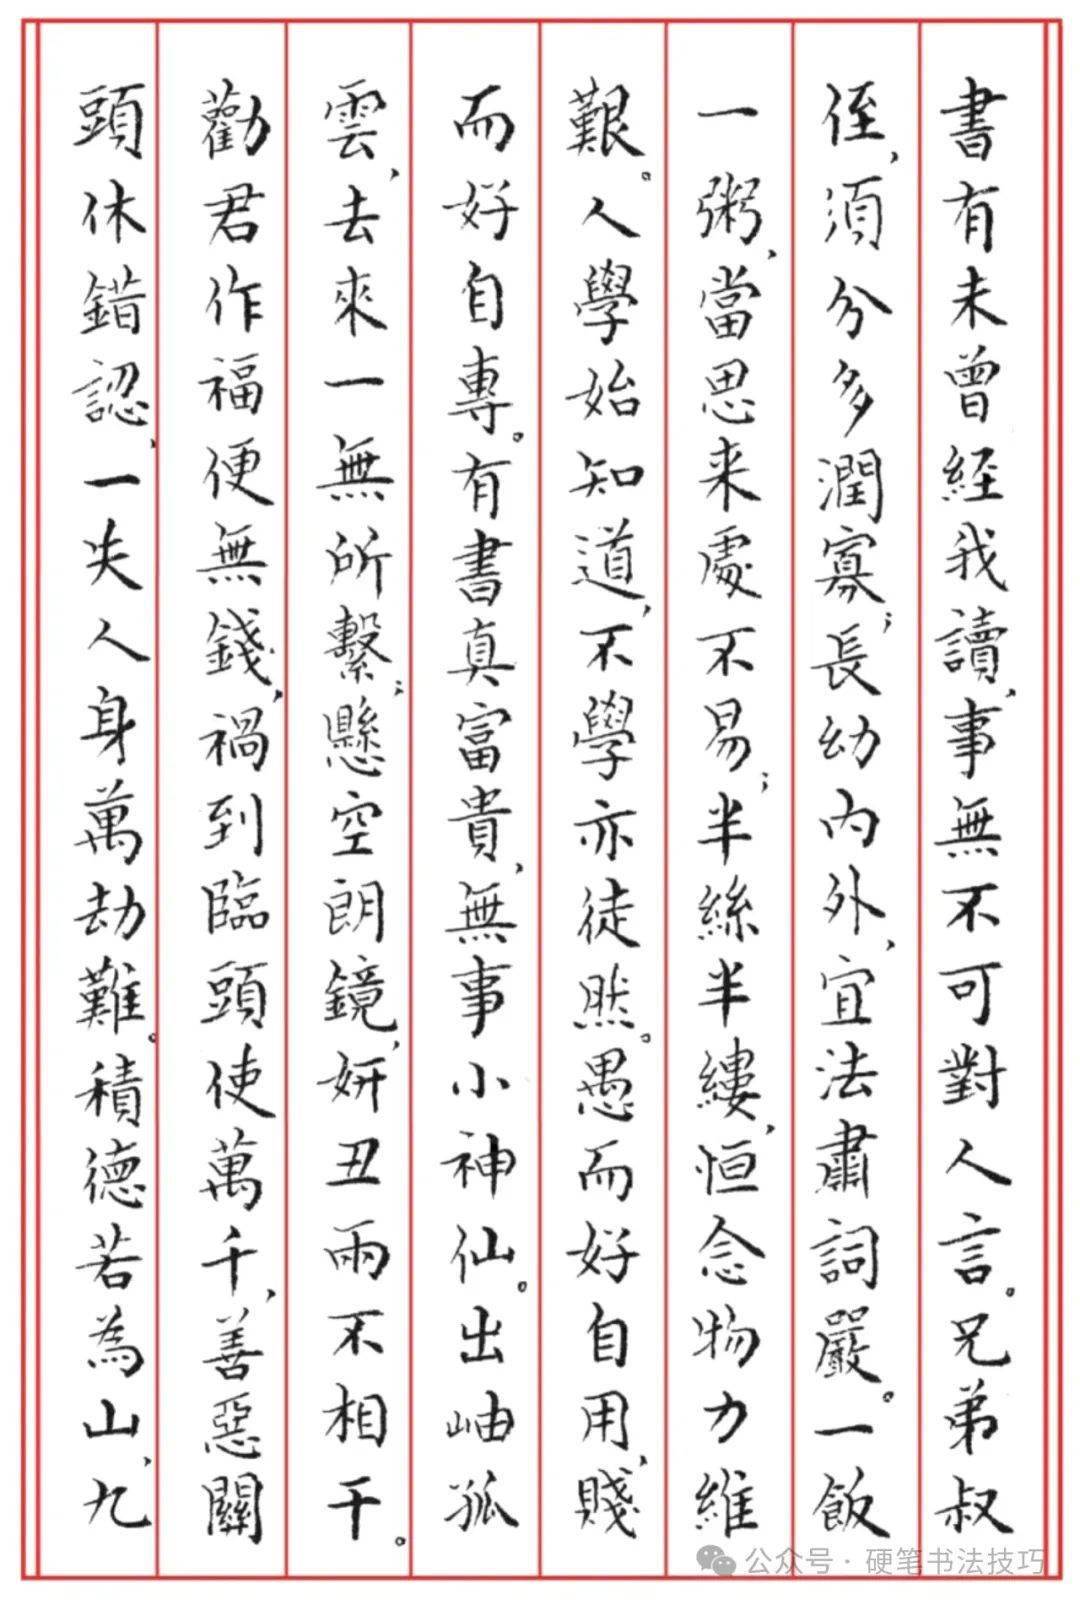 書有未曾經我讀，事無不可對人言。兄弟叔
侄，須分多潤寡；長幼內外，宜法肅詞嚴。一飯
一粥，當思来處不易；半絲半縷，恒念物力維
艱。人學始知道，不學亦徒然。愚而好自用，賤
而好自專。有書真富貴，無事小神仙。出岫孤
雲，去來一無所繫；懸空朗鏡，妍丑兩不相干。
勸君作福便無錢，禍到臨頭使萬千，善惡關
頭休錯認，一失人身萬劫難。積德若為山，九
公众号·硬笔书法技巧